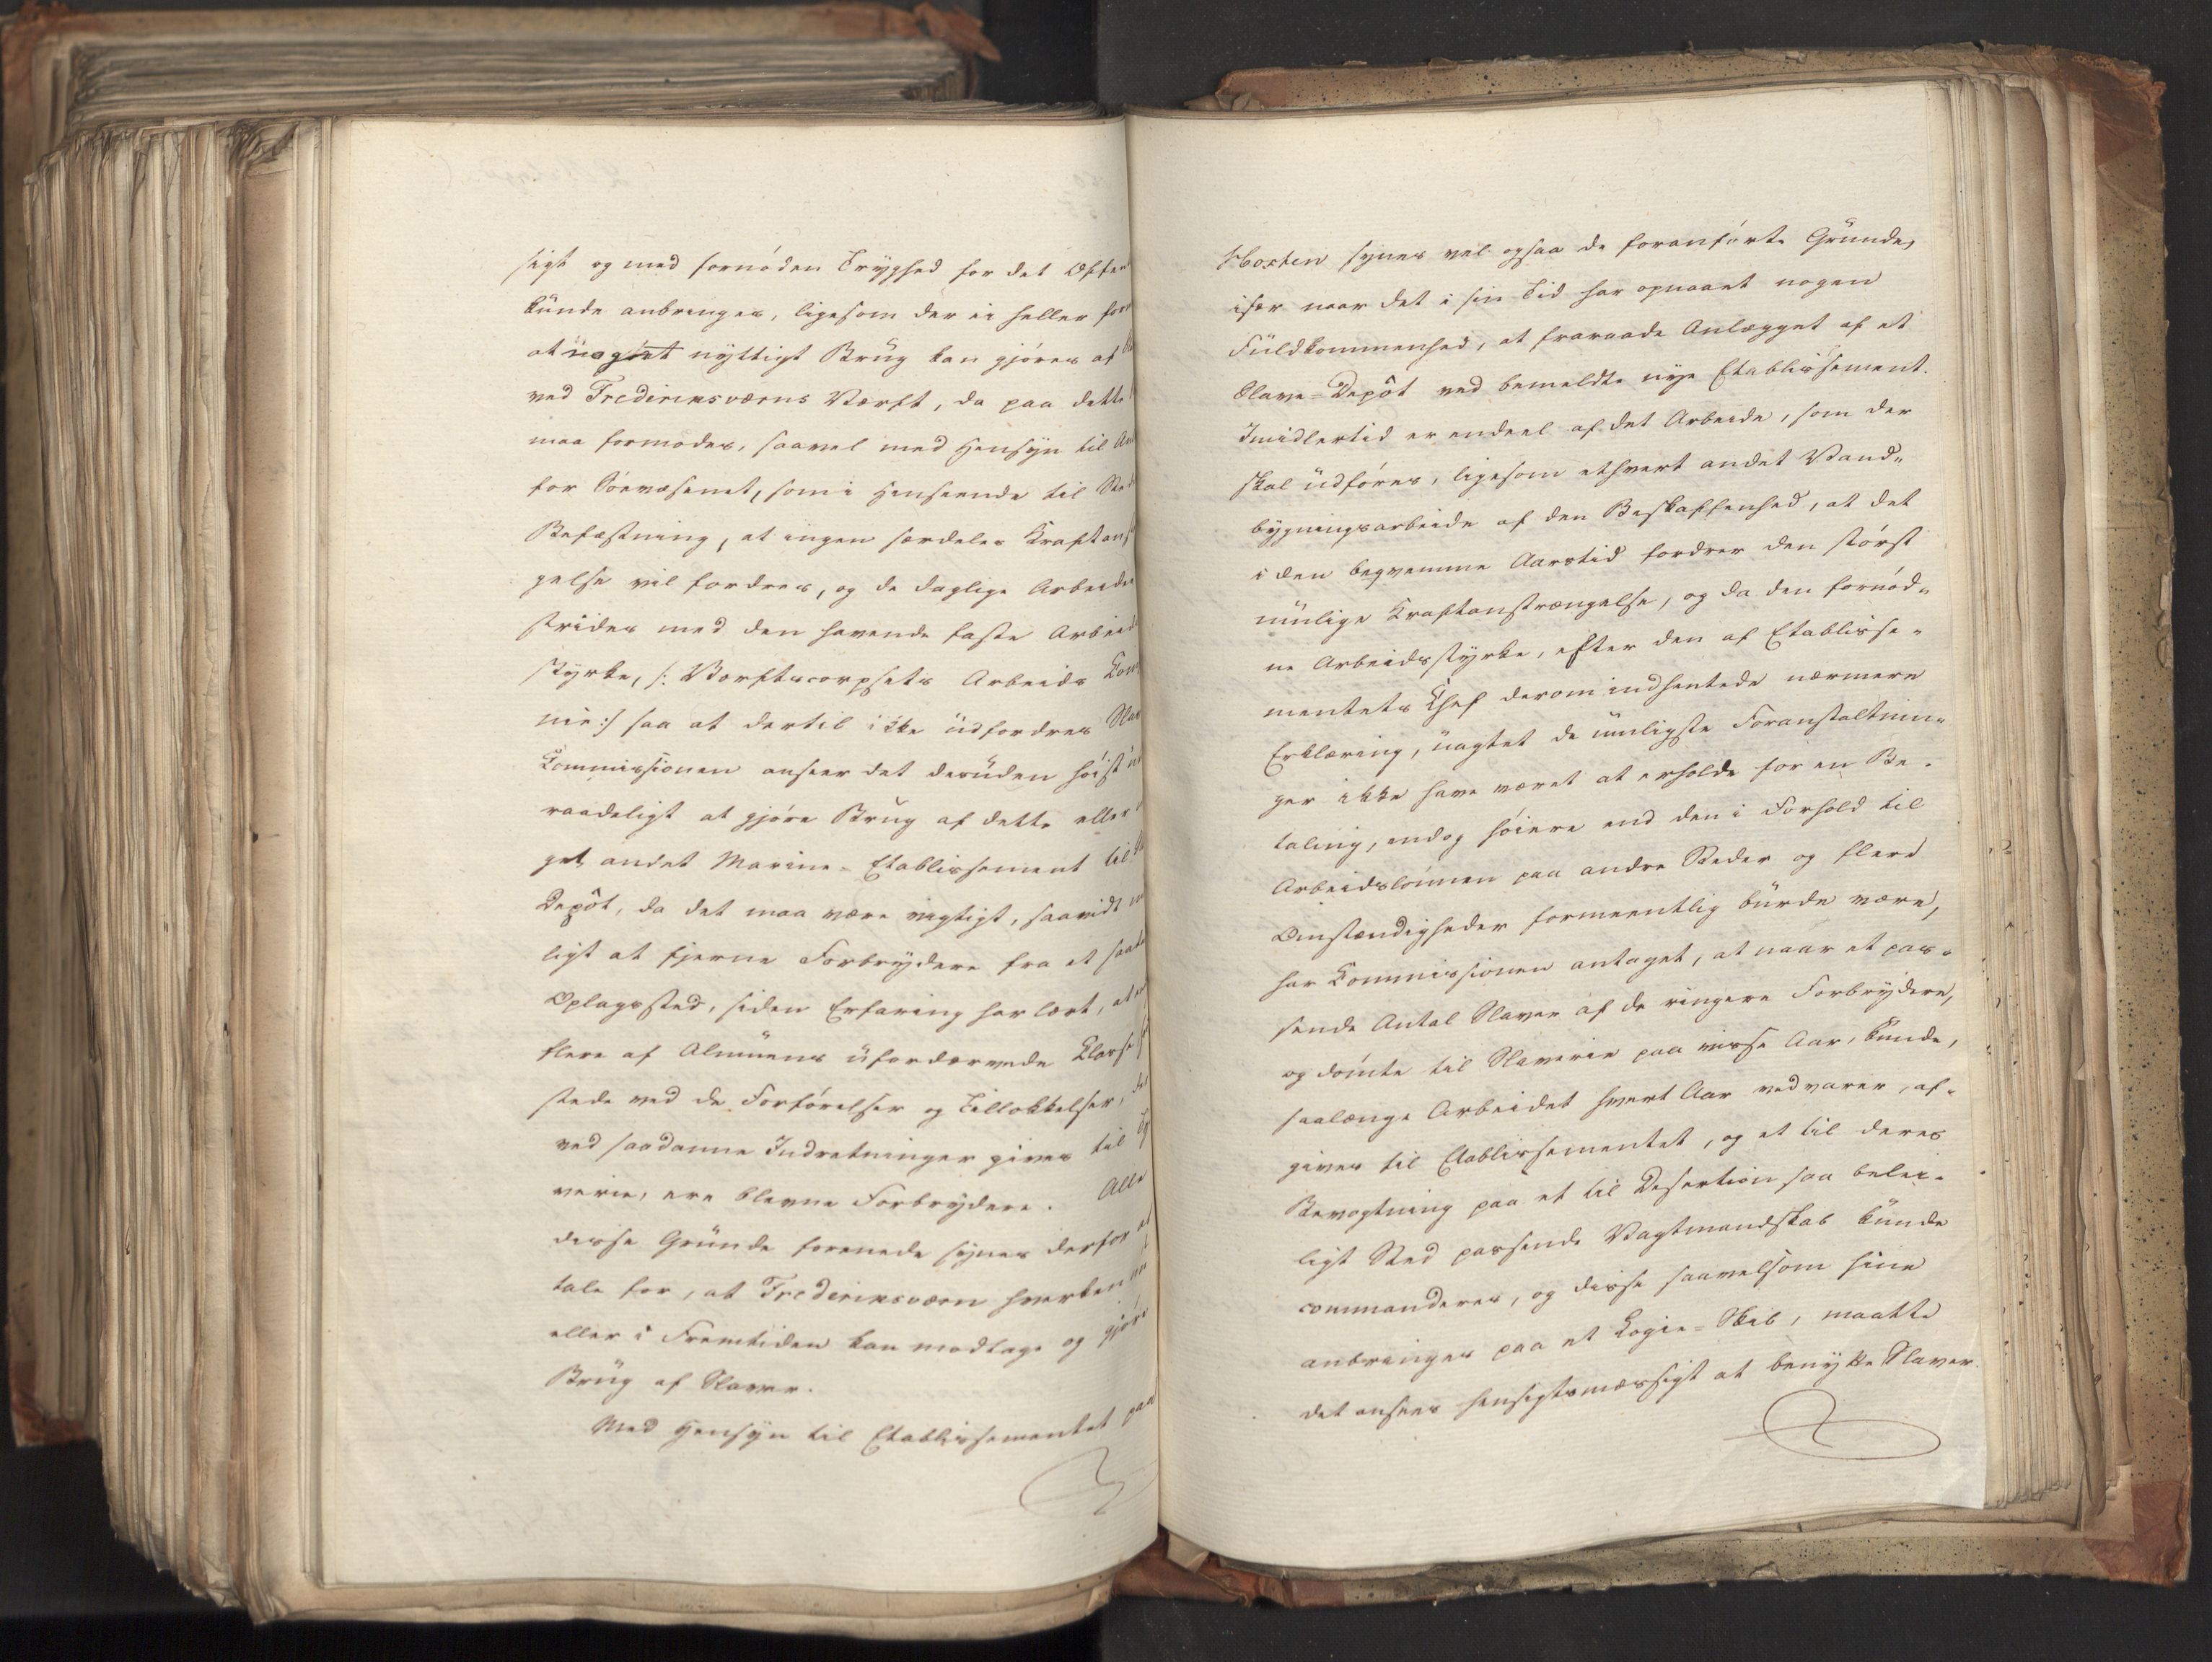 sigt og med fornöden Tryghed for det Offen
kunde anbringes, ligesom der ei heller for
at noget nyttigt Brug kan gjöres af
ved Frederiksværns Værft, da paa dette
maa formodes, saavel med Hensyn til
for Söevæsenet, som i Henseende til
Befæstning, at ingen særdeles Kraftans
gelse vil fordres, og de daglige Arbeider
strides med den havende faste Arbeids
styrke, /: Værftscorpsets Arbeids Com
nie :/ saa at dertil ikke udfordres Slav
Commissionen anseer det desuden höist
raadeligt at gjöre Brug af dette eller
get andet Marine-Etablissement til
Depôt, da det maa være vigtigt, saavidt
ligt at fjerne Forbrydere fra et saada
Oplagssted, siden Erfaring har lært, at
flere af Almuens ufordærvede Classe
stede ved de Forförelser og Tillokkelser, der
ved saadanne Indretninger gives til Ty
verie, ere blevne Forbrydere. Alle
disse Grunde forenede synes derfor at
tale for, at Frederiksværn hverken nu
eller i Fremtiden kan modtage og gjöre
Brug af Slaver.
Med Hensyn til Etablissementet paa
Horten synes vel ogsaa de foranförte Grunde,
især naar det i sin Tid har opnaaet nogen
Fuldkommenhed, at fraraade Anlægget af et
Slave-Depôt ved bemeldte nye Etablissement.
Imidlertid er endeel af det Arbeide, som der
skal udföres, ligesom ethvert andet Vand-
bygningsarbeide af den Beskaffenhed, at det
i den beqvemme Aarstid fordrer den störst
mulige Kraftanstrængelse, og da den fornöd-
ne Arbeidsstyrke, efter den af Etablisse-
mentets Chef derom indhentede nærmere
Erklæring, uagtet de muligste Foranstaltnin-
ger ikke have været at erholde for en Be-
taling, endog höiere end den i Forhold til
Arbeidslönnen paa andre Steder og flere
Omstændigheder formeentlig burde være,
har Commissionen antaget, at naar et pas-
sende Antal Slaver af de ringere Forbrydere,
og dömte til Slaverie paa visse Aar, kunde,
saalænge Arbeidet hvert Aar vedvarer, af-
gives til Etablissementet, og et til deres
Bevogtning paa et til Desertion saa belei-
ligt Sted passende Vagtmandskab kunde
commanderes, og disse saavelsom hine
anbringes paa et Logie-Skib, maatte
det ansees hensigtsmæssigt at benytte Slaver